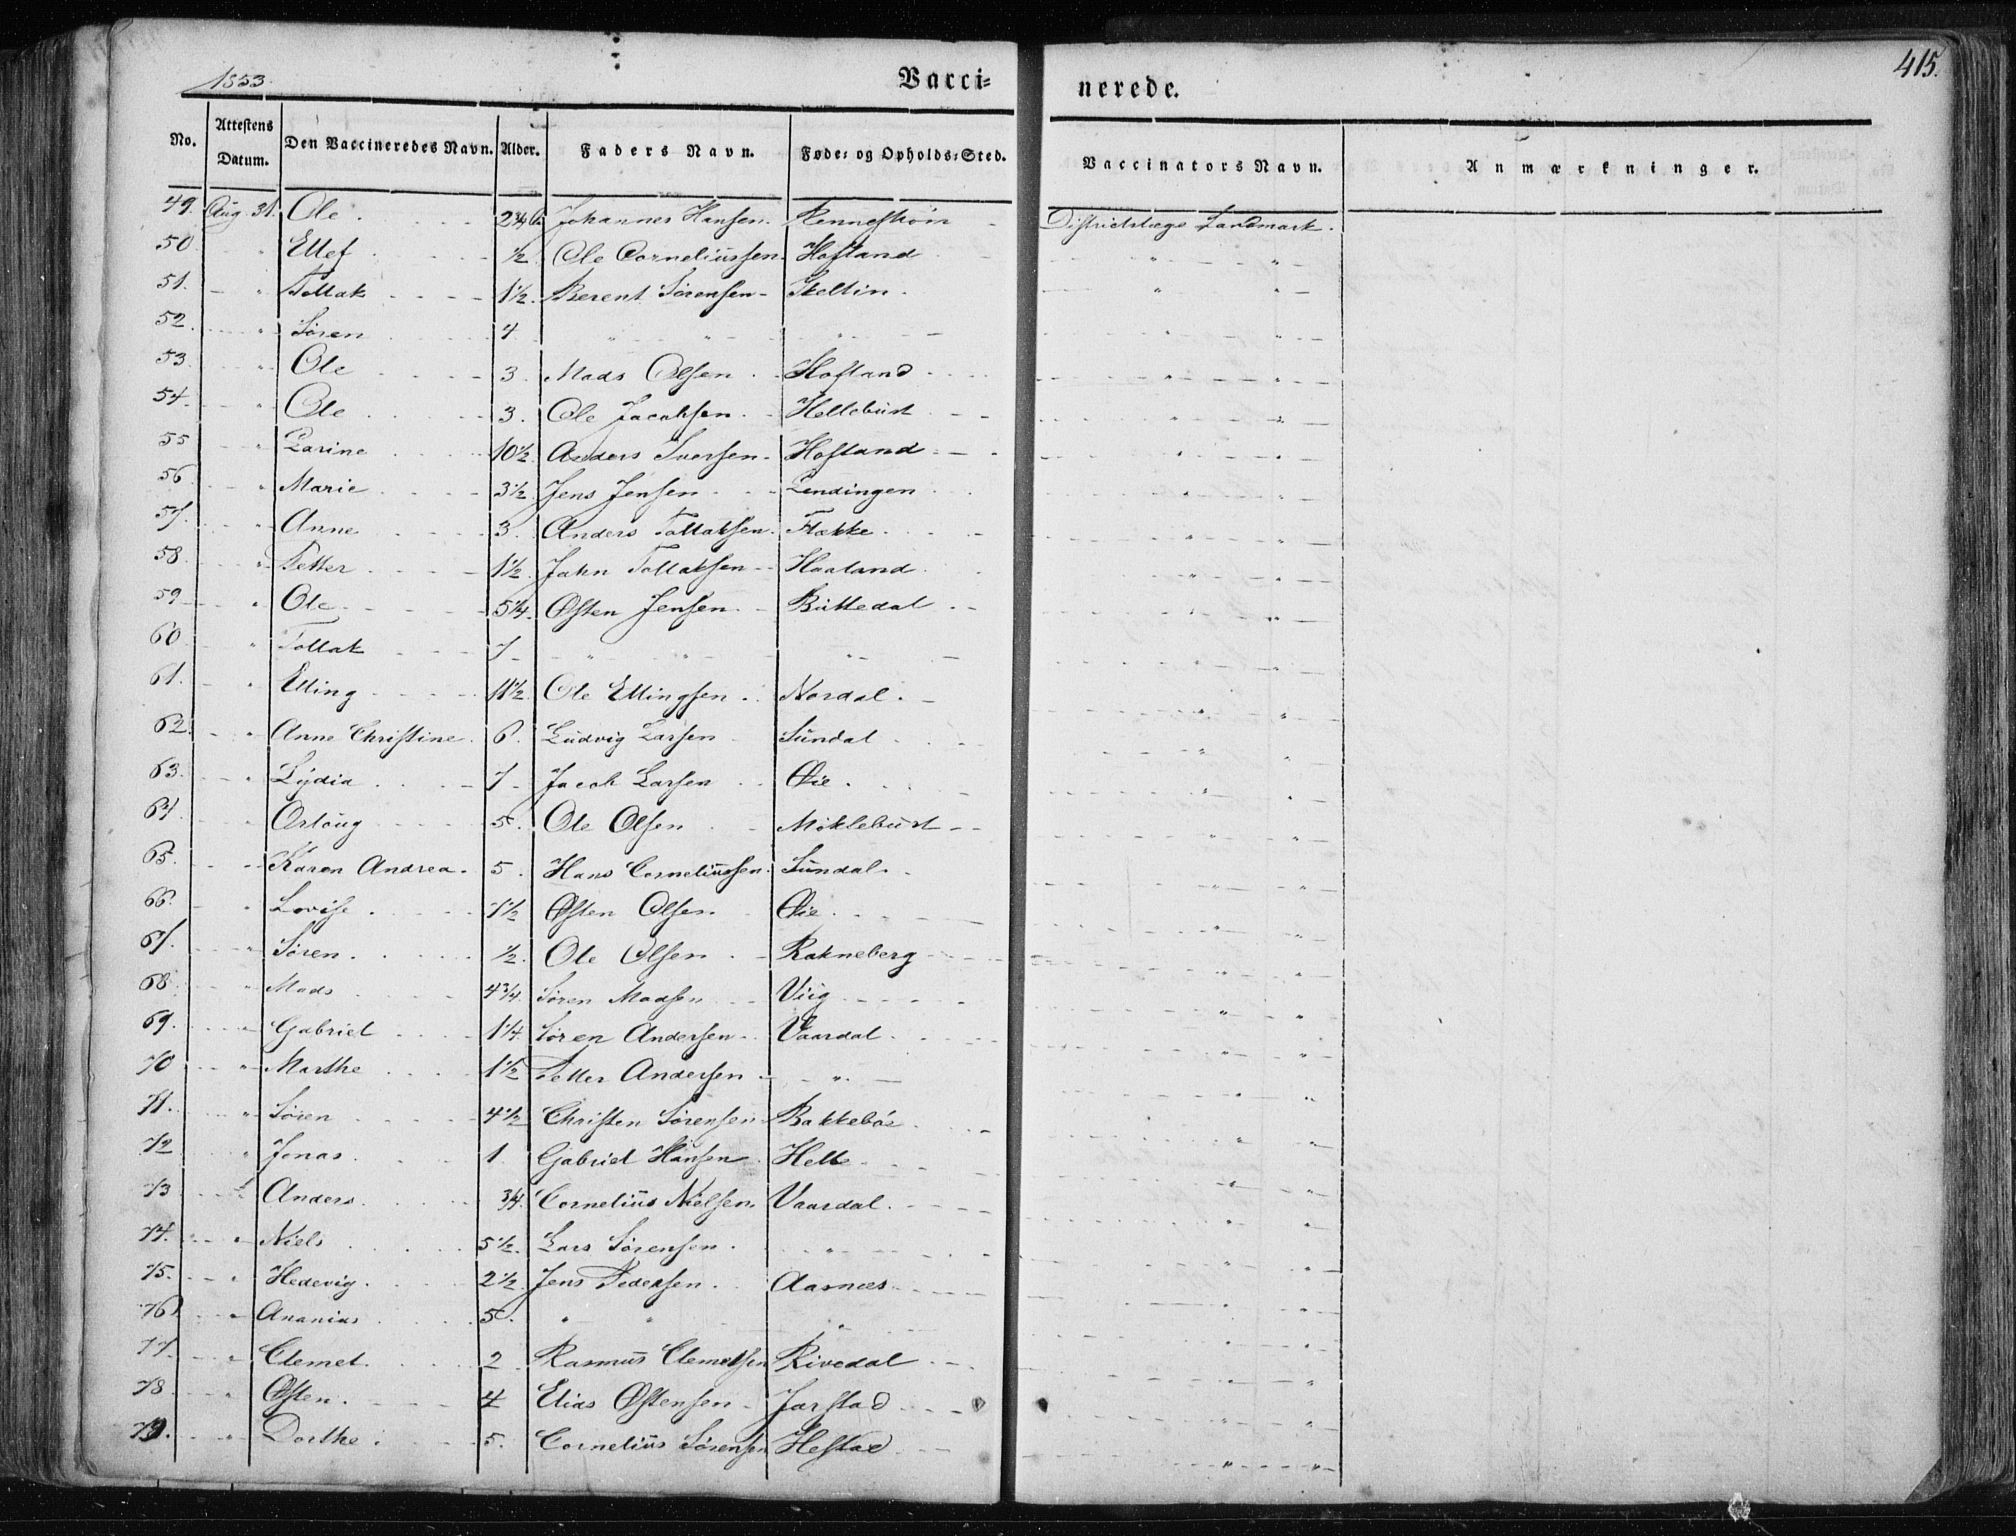 1853.
Vacci=
nerede.
415.
No. Attestens Datum. Den Vaccineredes Navn. Alder. Faders Navn. Føde= og Opholds=Sted. Vaccinators Navn. Anmærkninger.
49. Aug. 31. Ole Johannes Hansen. Districtslæge Landmark.
50 " Ellef ½ Ole Corneliussen. Hofland " "
51. " Tollak 1½. Berent Sørensen Skeltin. " "
52. " Søren 4 " " " " "
53. " Ole 3. Mads Olsen Hofland " "
54. " Ole 3. Ole Jacobsen. Hellebust " "
55 " Larine 10½. Anders Iversen. Hofland " "
56. " Marie 3½. Jens Jensen Lendingen " "
57. " Anne 3. Anders Tollaksen. Flekke " "
58. " Petter 1½. John Tollaksen Haaland " "
59 " Ole 5¼. Østen Jensen. Buttedal " "
60 " Tollak 7 " " " " "
61. " Elling 11½. Ole Ellingsen. Nordal. " "
62. " Anne Christine. 6. Ludvig Larsen Sundal " "
63. " Lydia 7 Jacob Larsen Øie. " "
64. " Orloug 5. Ole Olsen Møklebust " "
65. " Karen Andrea. 5. Hans Corneliussen. Sundal. " "
66. " Lovise 1½ Østen Olsen. Øie. " "
67. " Søren. ½. Ole Olsen Rakneberg " "
68. " Mads 4¾. Søren Madsen Viig " "
69. " Gabriel 1¼. Søren Andersen Vaardal. " "
70 " Marthe 1½ Petter Andersen " " "
71. " Søren 4½ Christen Sørensen Bakkebøe " "
72 " Jonas. 1 Gabriel Hansen Helle " "
73 " Anders. ¾. Cornelius Nielsen. Vaardal. " "
74. " Niels 5½. Lars Sørensen. " " "
75. " Hedevig. 2½. Jens Pedersen. Aasnæs. " "
76 " Ananias 5. " " " " "
77. " Clemet. 2 Rasmus Clemetsen Rivedal " "
78 " Østen. 4 Elias Østensen Jarstad " "
79. " Dorthe. 5. Cornelius Sørensen Hestad " "